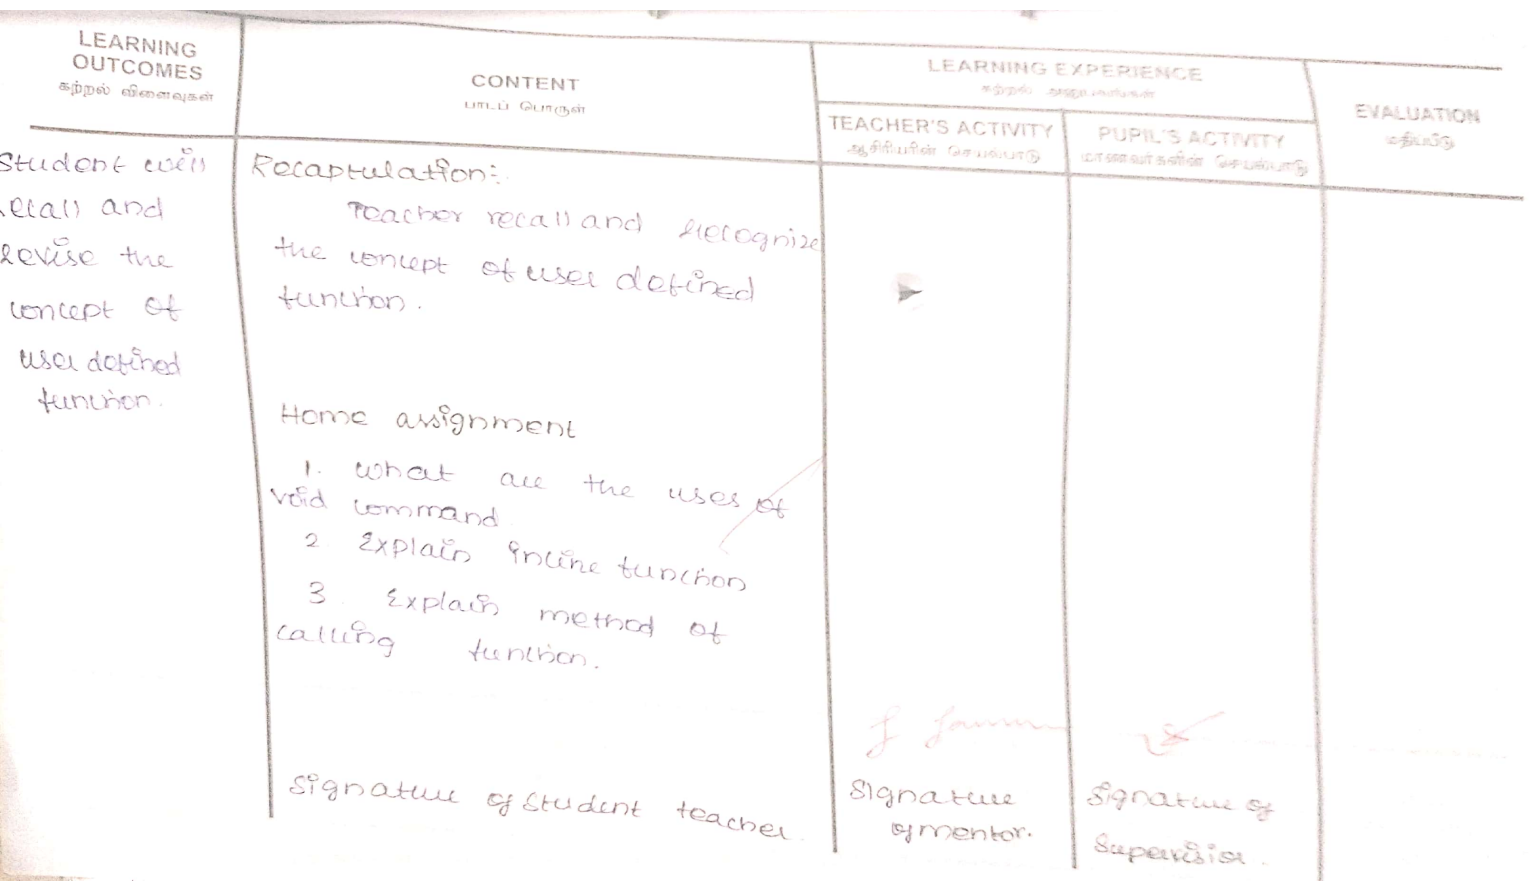 LEARNING
OUTCOMES
கற்றல் விளைவுகள்
CONTENT
பாடப் பொருள்
LEARNING EXPERIENCE
கற்றல் அனுபவங்கள்
TEACHER'S ACTIVITY
ஆசிரியரின் செயல்பாடு
PUPIL'S ACTIVITY
மாணவர்களின் செயல்பாடு
EVALUATION
மதிப்பீடு
Student will
recall and
revise the
concept of
user defined
function.
Recaptulation:
Teacher recall and recognize
the concept of user defined
function.
Home assignment
1. what are the uses of
void command
2 Explain inline function
3. Explain method of
calling function.
Signature of student teacher.
Signature
of mentor.
Signature of
Supervisior.